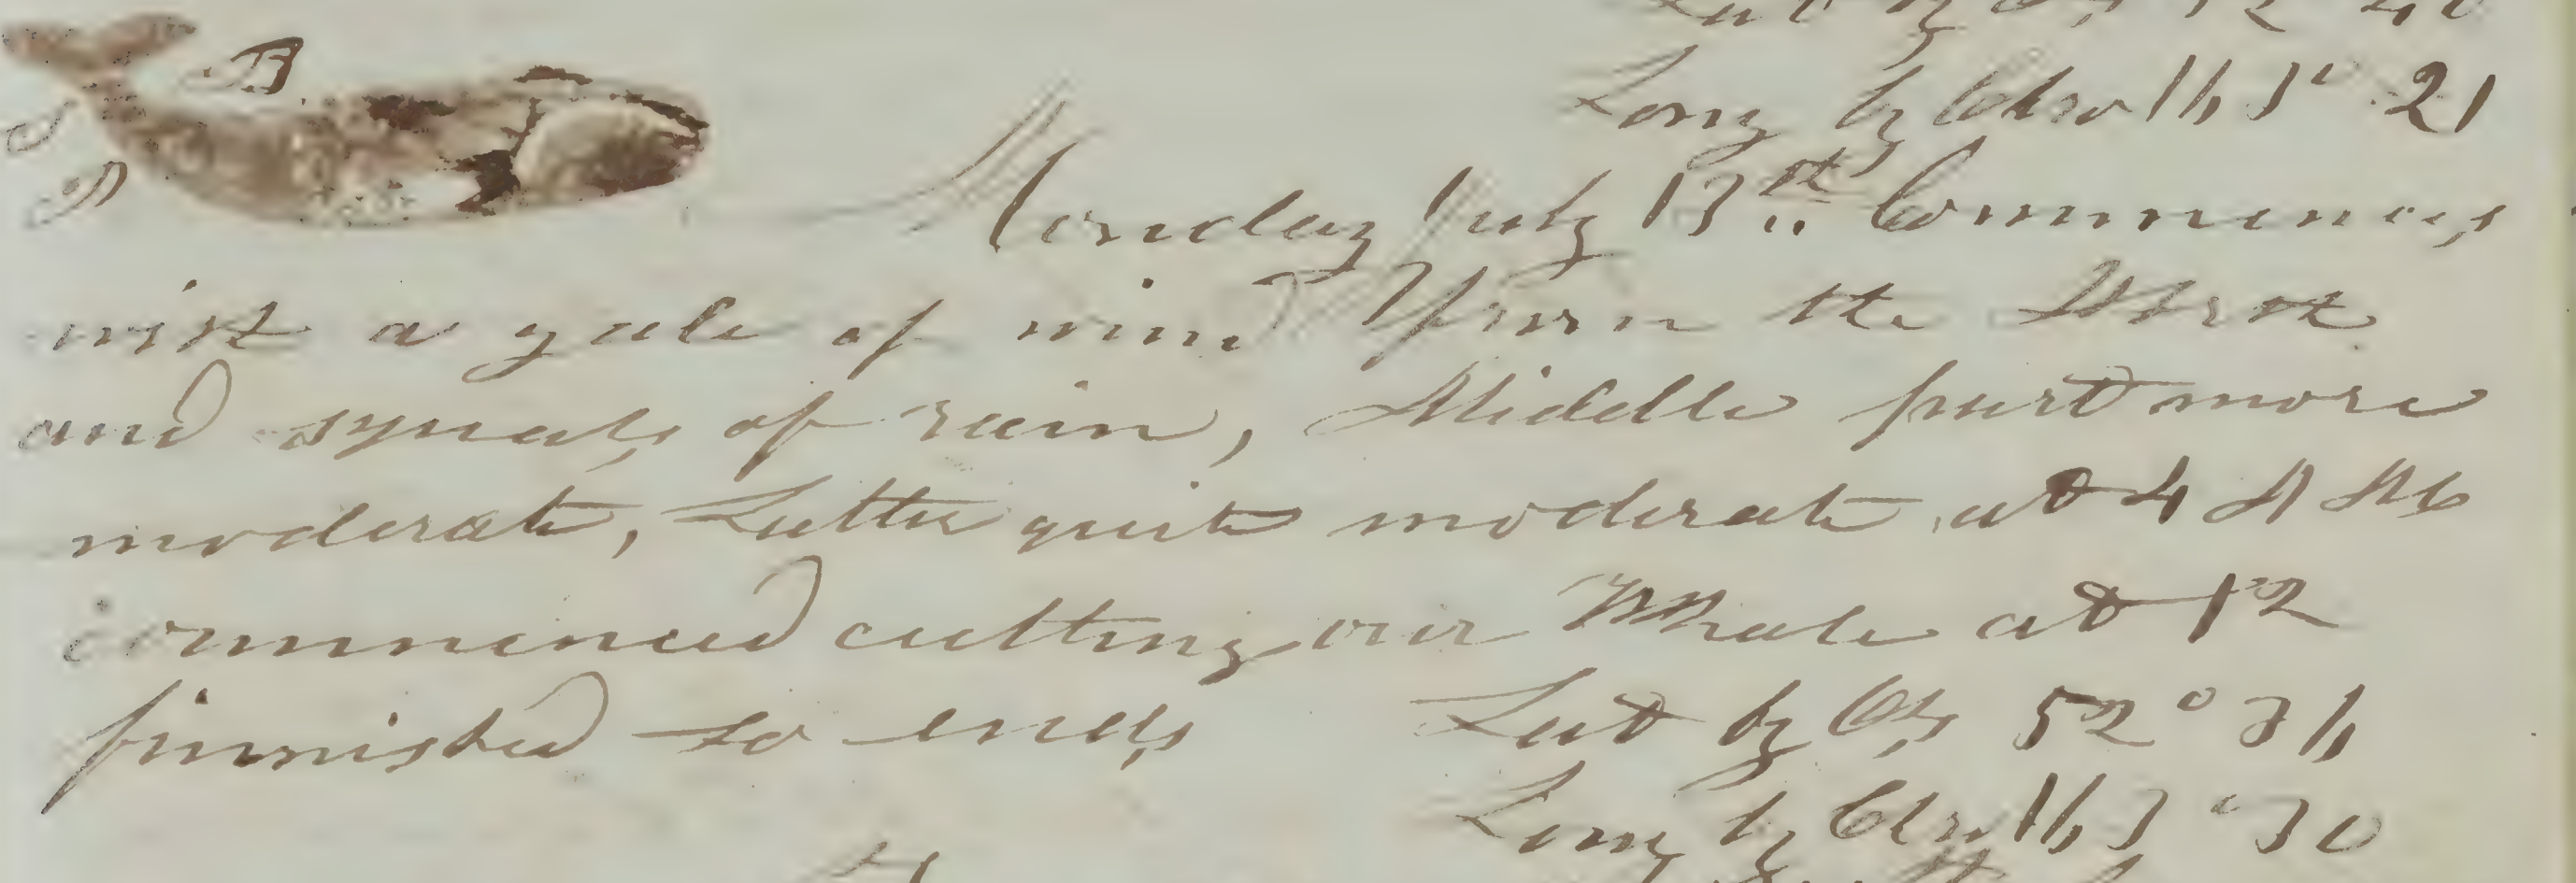 Lat by Obs 52° 40
Long by Chro 163° 21
B
Monday July 13th Commences
with a gale of wind from the North
and squals of rain, Middle part more
moderate, Latter quite moderate at 4 AM
commenced cutting our Whale at 12
finnished so ends
Lat by Obs 52° 36
Long by Chro 163° 30